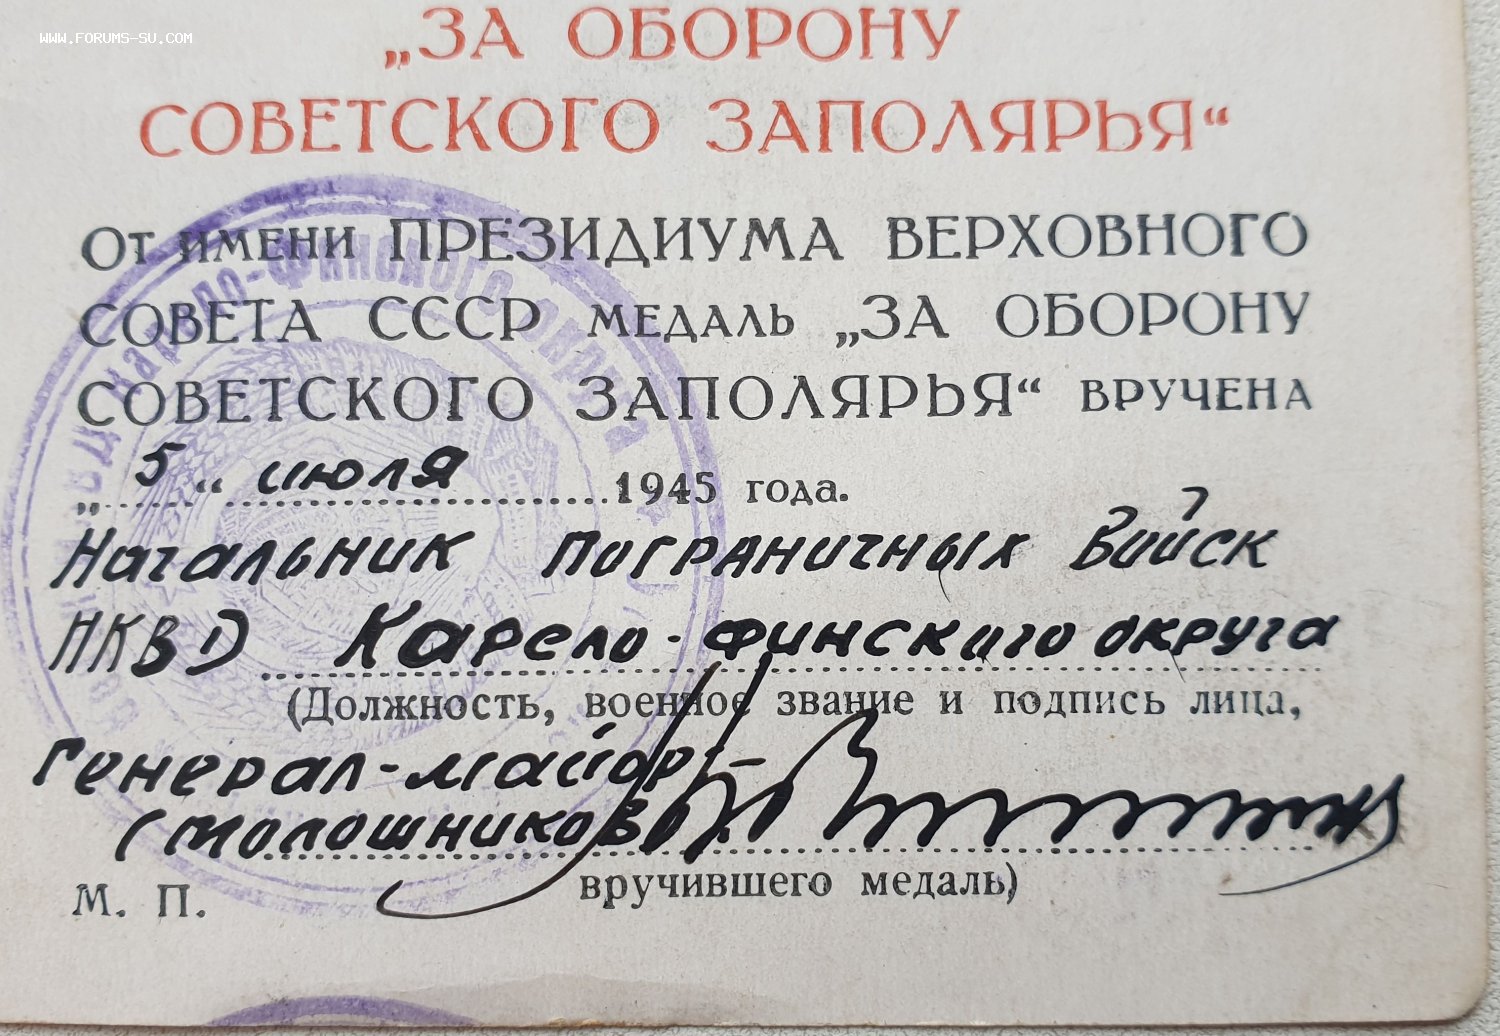 WWW.FORUMS-SU.COM
„ЗА ОБОРОНУ
СОВЕТСКОГО ЗАПОЛЯРЬЯ“
От имени ПРЕЗИДИУМА ВЕРХОВНОГО
СОВЕТА СССР МЕДАЛЬ „ЗА ОБОРОНУ
СОВЕТСКОГО ЗАПОЛЯРЬЯ“ ВРУЧЕНА
„ 5 “ июля 1945 года.
Начальник Пограничных Войск
НКВД Карело-финского округа
(Должность, военное звание и подпись лица,
Генерал-майор
Молошников
вручившего медаль)
М. П.
Карело-Финского округа